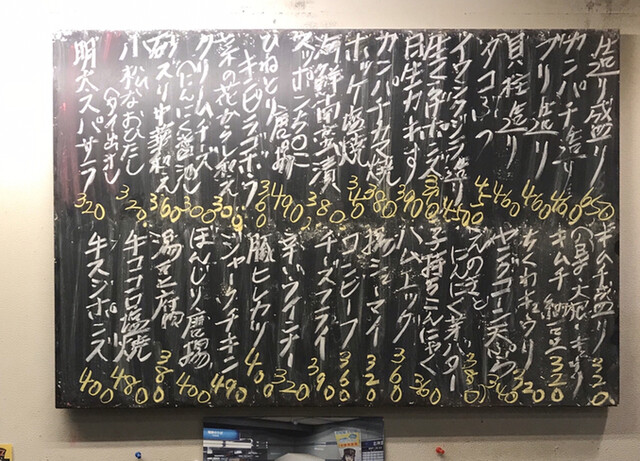 造り盛り 650
カンパチ造り 460
ブリ造り 460
貝柱造り 460
タコぶつ 45
イワシクジラ造り 450
生ガキポン酢
白生カキす 390
カンパチカマ焼 380
ホッケ塩焼
海鮮南蛮漬 380
スッポン 490
ひねとり唐揚 360
キビラゴボウ
菜の花からし和え 300
クリームチーズ
(にんにく醤油) 300
砂ズリ中華和え 360
小松なおひたし 320
明太スパサラ 320
キムチ盛り
(白菜・大根・キュウリ) 320
キムチ 納豆 320
ちくわキュウリ 320
ヤゲンナンコツ天ぷら 340
えのきと
にんにく芽バター 380
子持ちこんにゃく 360
ハムエッグ 360
揚シューマイ 320
コンビーフ 360
チーズフライ 390
辛いウインナー 320
豚ヒレカツ 400
ジャークチキン 490
ぼんじり唐揚 400
湯豆腐 380
牛ココロ塩焼 480
牛スジポンズ 400